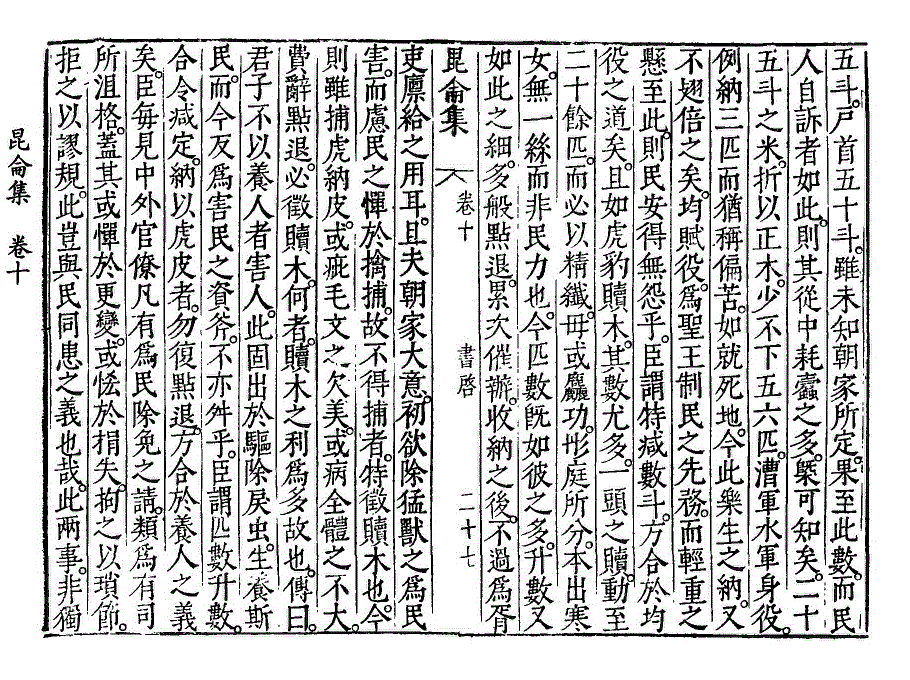 五斗。戶首五十斗。雖未知朝家所定。果至此數。而民
人自訴者如此。則其從中耗蠹之多。槩可知矣。二十
五斗之米。折以正木。少不下五六匹。漕軍水軍身役。
例納三匹而猶稱偏苦。如就死地。今此樂生之納。又
不翅倍之矣。均賦役。爲聖王制民之先務。而輕重之
懸至此。則民安得無怨乎。臣謂特减數斗。方合於均
役之道矣。且如虎豹贖木。其數尤多。一頭之贖。動至
二十餘匹。而必以精纖。毋或麤功。彤庭所分。本出寒
女。無一絲而非民力也。今匹數旣如彼之多。升數又
如此之細。多般點退。累次催辦。收納之後。不過爲胥
昆侖集 卷十 書啓 二十七
吏廩給之用耳。且夫朝家大意。初欲除猛獸之爲民
害。而慮民之憚於擒捕。故不得捕者。特徵贖木也。今
則雖捕虎納皮。或疵毛文之欠美。或病全體之不大。
費辭點退。必徵贖木。何者。贖木之利爲多故也。傳曰。
君子不以養人者害人。此固出於驅除戾虫。生養斯
民。而今反爲害民之資斧。不亦舛乎。臣謂匹數升數。
合令减定。納以虎皮者。勿復點退。方合於養人之義
矣。臣每見中外官僚凡有爲民除免之請。類爲有司
所沮格。蓋其或憚於更變。或恡於捐失。拘之以瑣節。
拒之以謬規。此豈與民同患之義也哉。此兩事。非獨
昆侖集 卷十